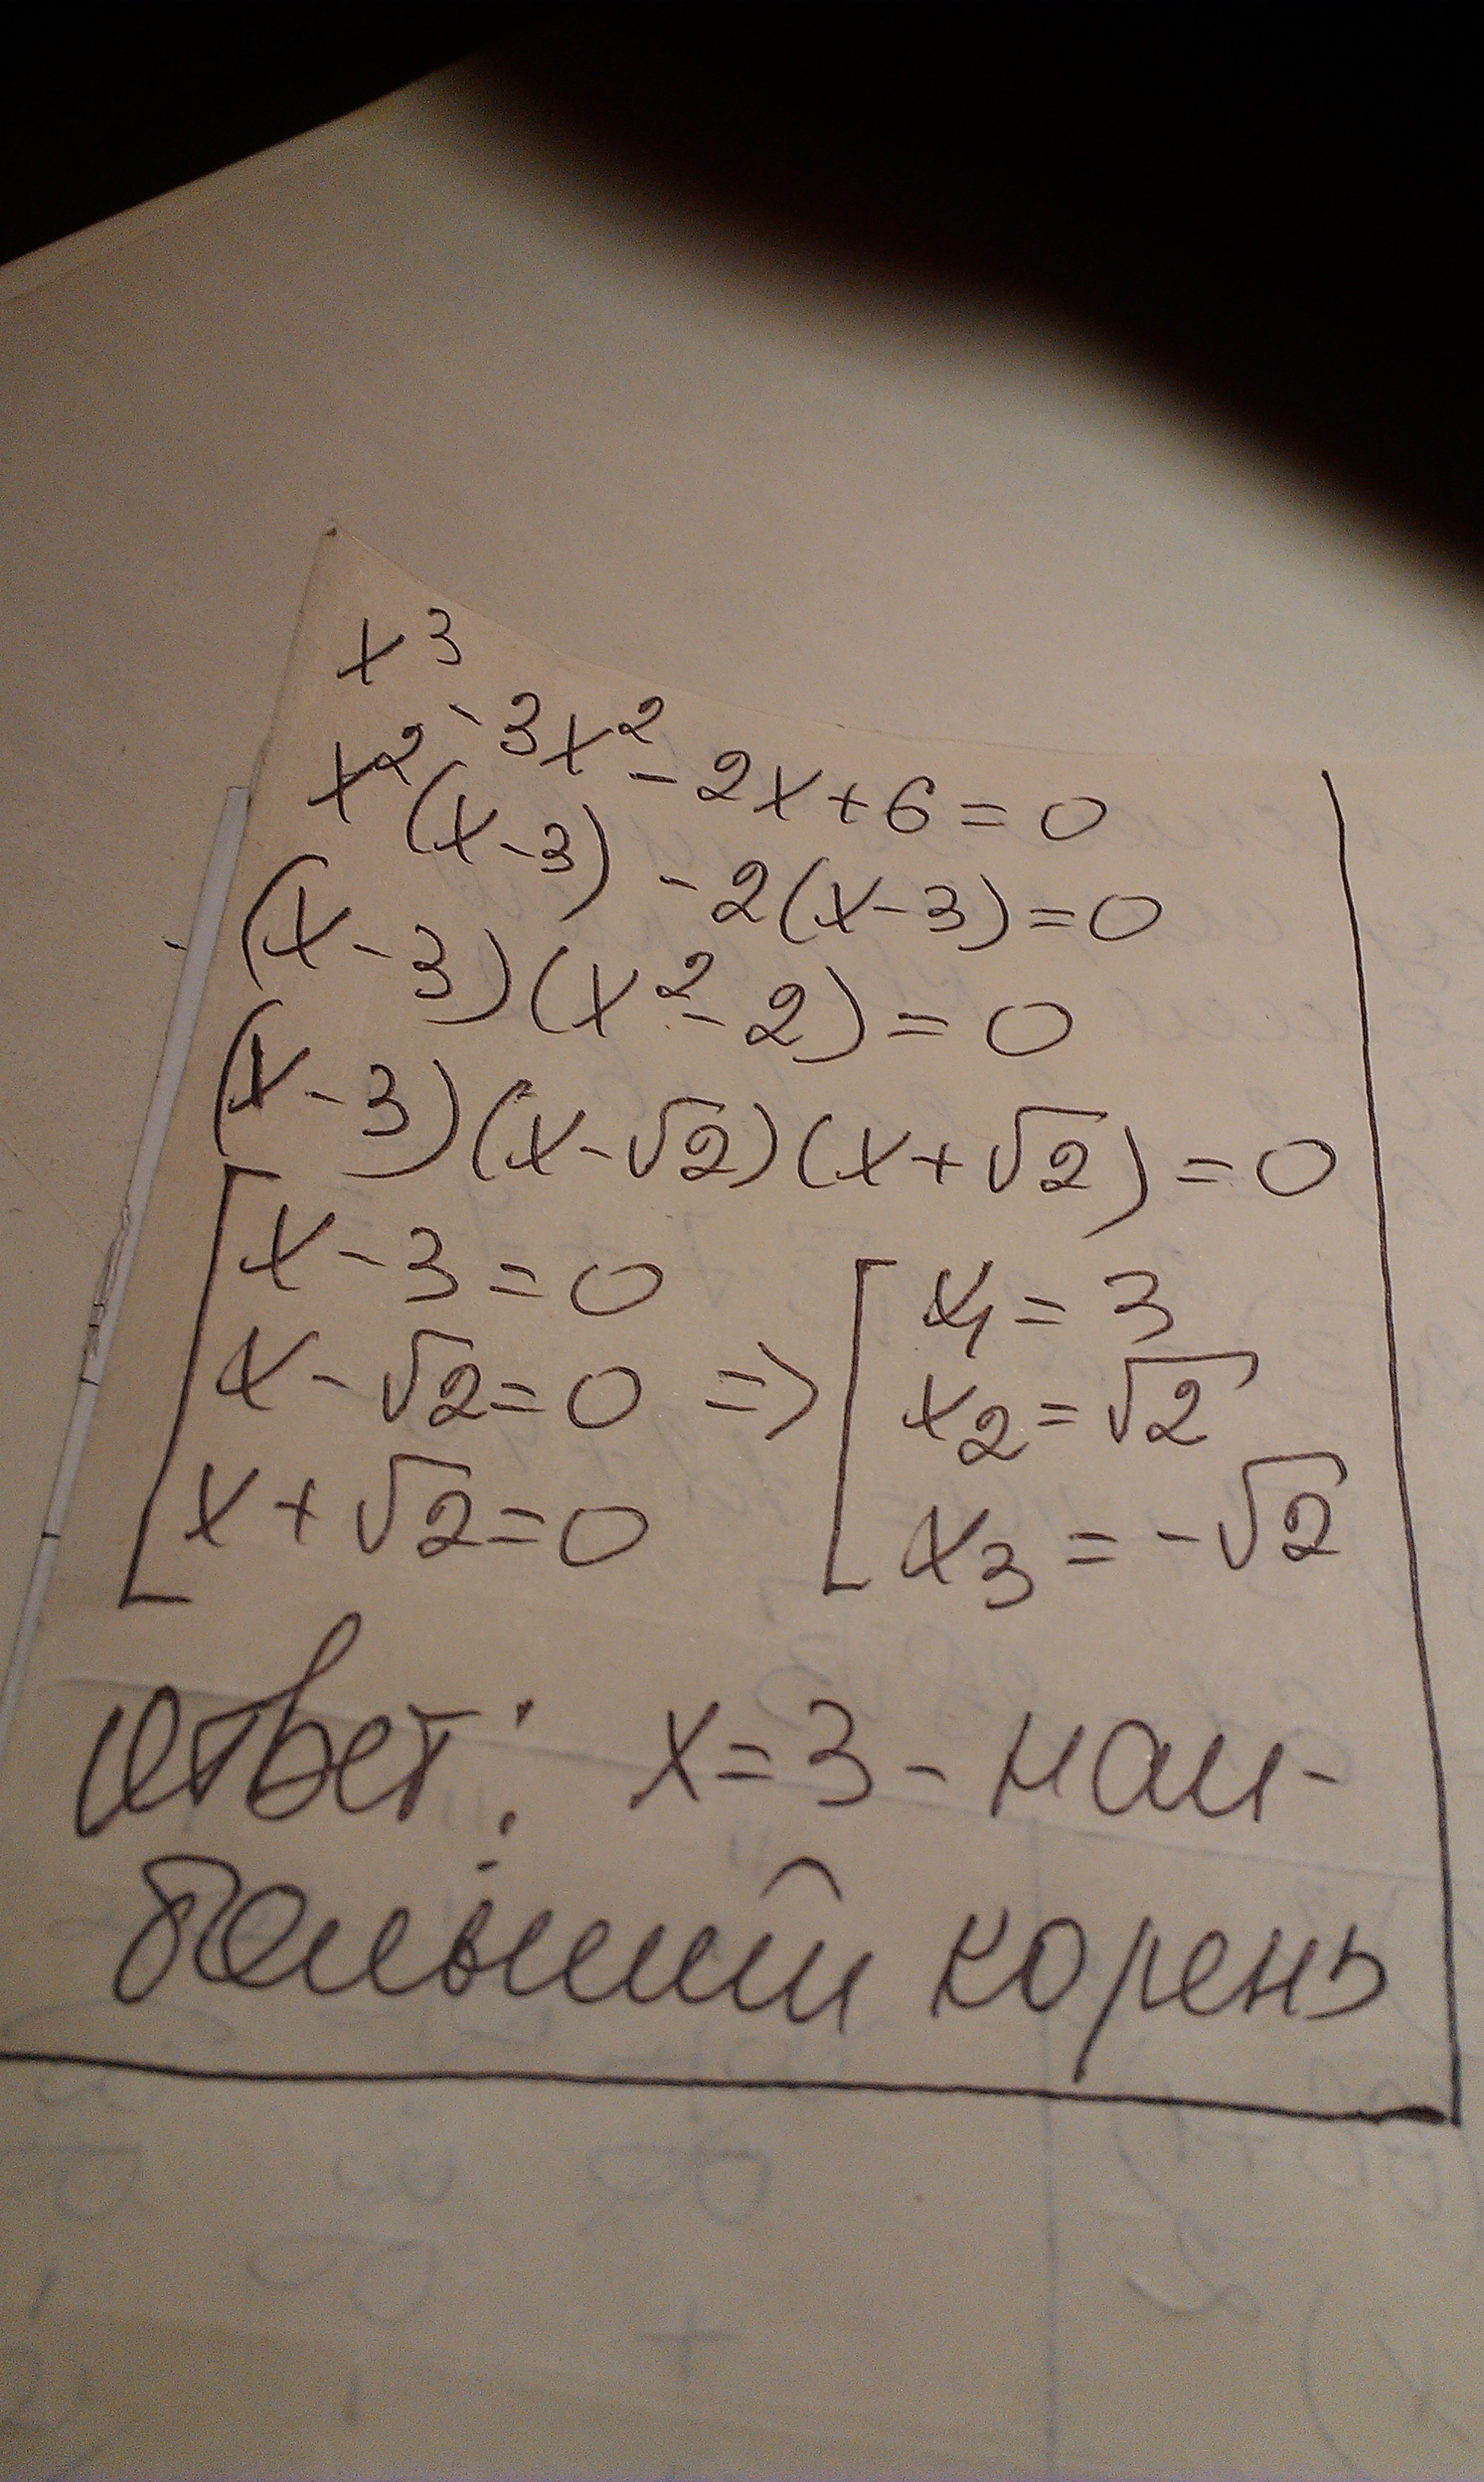 x³ - 3x² - 2x + 6 = 0
x²(x - 3) - 2(x - 3) = 0
(x - 3)(x² - 2) = 0
(x - 3)(x - √2)(x + √2) = 0
x - 3 = 0
x - √2 = 0 => x₁ = 3
x + √2 = 0 x₂ = √2
x₃ = -√2
Ответ: x = 3 - наи-
больший корень